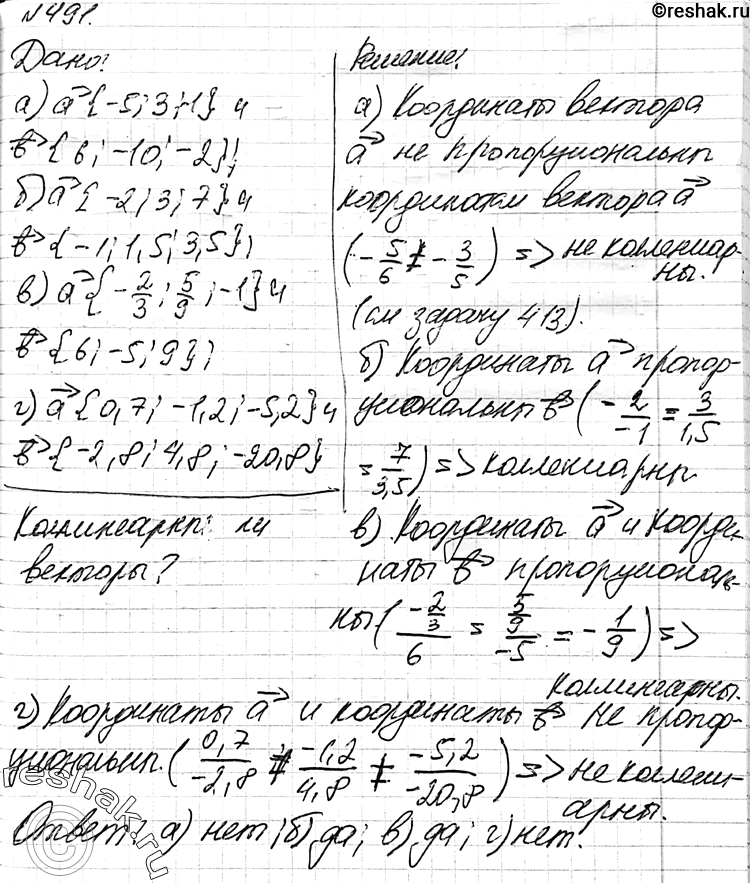 ©reshak.ru
№491.
Дано:
а) a⃗ {-5; 3; -1} и
b⃗ {6; -10; -2};
б) a⃗ {-2; 3; 7} и
b⃗ {-1; 1,5; 3,5};
в) a⃗ {-2/3; 5/9; -1} и
b⃗ {6; -5; 9};
г) a⃗ {0,7; -1,2; -5,2} и
b⃗ {-2,8; 4,8; -20,8}
Коллинеарны ли
векторы?
Решение:
а) Координаты вектора
a⃗ не пропорциональны
координатам вектора a⃗
(-5/6 ≠ -3/5) => не коллениарны.
(см задачу 413).
б) Координаты a⃗ пропор-
циональны b⃗ (-2/-1 = 3/1,5
= 7/3,5) => коллениарны
в) Координаты a⃗ и коорди-
наты b⃗ пропорциональ-
ны (-2/3 / 6 = 5/9 / -5 = -1/9) =>
коллинеарны.
г) Координаты a⃗ и координаты b⃗ не пропор-
циональны. (0,7/-2,8 ≠ -1,2/4,8 ≠ -5,2/-20,8) => не коллени-
арны.
Ответ: а) нет; б) да; в) да; г) нет.